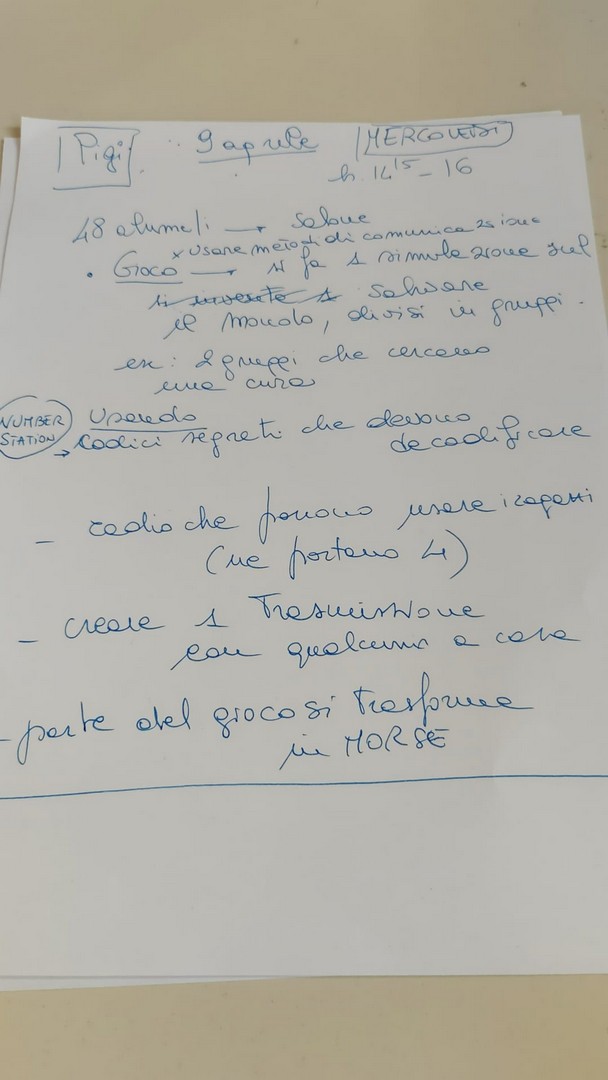 Pigi 9 aprile MERCOLEDÌ
h. 14¹⁵ - 16
48 alunni → salone
x usare metodi di comunicazione
• Gioco → si fa 1 simulazione sul
si inventa 1 salvare
il mondo, divisi in gruppi.
es: 2 gruppi che cercano
una cura
NUMBER STATION Usando
→ codici segreti che devono
decodificare
- radio che possono usare i ragazzi
(ne portano 4)
- creare 1 Trasmissione
con qualcuno a casa
- parte del gioco si trasforma
in MORSE